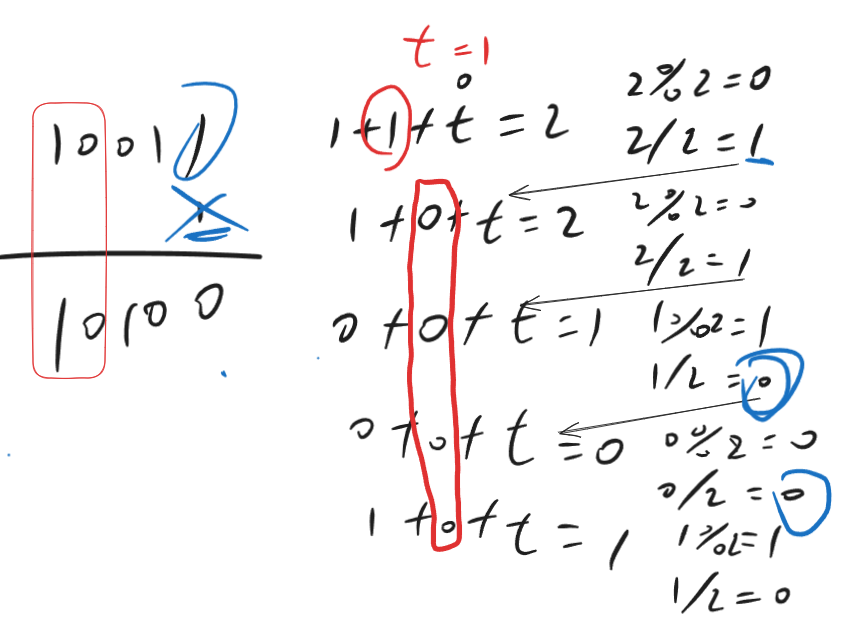 t = 1
0
1 + 1 + t = 2
2 % 2 = 0
2 / 2 = 1
1 0 0 1 1
1
1 0 1 0 0
1 + 0 + t = 2
2 % 2 = 0
2 / 2 = 1
0 + 0 + t = 1
1 % 2 = 1
1 / 2 = 0
0 + 0 + t = 0
0 % 2 = 0
0 / 2 = 0
1 + 0 + t = 1
1 % 2 = 1
1 / 2 = 0